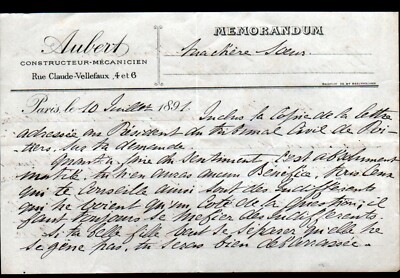 Aubert
CONSTRUCTEUR-MÉCANICIEN
Rue Claude-Vellefaux, 4 et 6
MEMORANDUM
Ma chère Sœur
Paris, le 10 Juillet 1891. Inclus la Copie de la lettre
adressée au Président du tribunal Civil de Poi-
tiers, sur ta demande.
Quant à sentiment, c'est absolument
tu n'en auras aucun Bénéfice,
qui te Conseille ainsi sont des indifférents
qui ne voient qu'un Coté de la Question; il
faut toujours se méfier des indifférents.
Si ta belle fille veut se séparer qu'elle ne
se gêne pas, tu seras bien débarrassée.